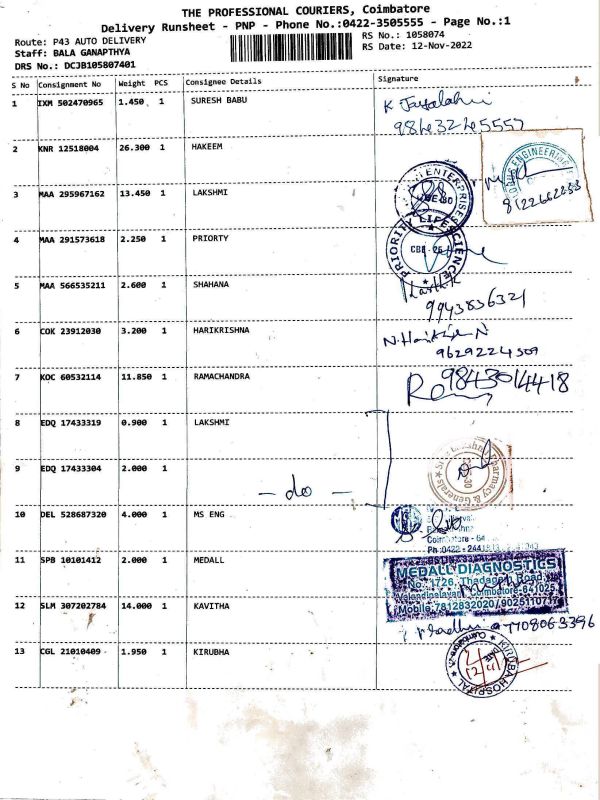 THE PROFESSIONAL COURIERS, Coimbatore
Delivery Runsheet - PNP - Phone No.:0422-3505555 - Page No.:1
Route: P43 AUTO DELIVERY
RS No.: 1058074
Staff: BALA GANAPTHYA
RS Date: 12-Nov-2022
DRS No.: DCJB105807401
S No Consignment No Weight PCS Consignee Details Signature
1 IXM 502470965 1.450 1 SURESH BABU
9843245557
2 KNR 12518004 26.300 1 HAKEEM
ENGINEERING
8122662233
3 MAA 295967162 13.450 1 LAKSHMI
ENTERPRISES
4 MAA 291573618 2.250 1 PRIORTY
PRIORITY LIFE SCIENCE
CBE - 25
5 MAA 566535211 2.600 1 SHAHANA
Karthik
9943836321
6 COK 23912030 3.200 1 HARIKRISHNA
9629224509
7 KOC 60532114 11.850 1 RAMACHANDRA
9843014418
8 EDQ 17433319 0.900 1 LAKSHMI
9 EDQ 17433304 2.000 1
- do -
Pharmacy & Generals
10 DEL 528687320 4.000 1 MS ENG
Coimbatore - 64
Ph :0422 - 244
11 SPB 10101412 2.000 1 MEDALL
MEDALL DIAGNOSTICS
No. 1726, Thadagam Road,
Coimbatore-641025
Mobile: 7812832020 / 9025110737
12 SLM 307202784 14.000 1 KAVITHA
7708063396
13 CGL 21010409 1.950 1 KIRUBHA
KIRUBA HOSPITAL